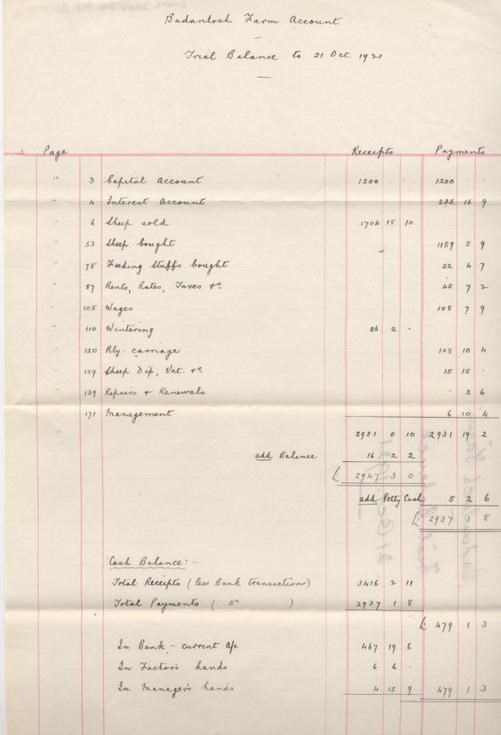 Badanloch Farm Account
Trial Balance to 21 Oct. 1921
Page Receipts Payments
" 3 Capital Account 1200 . . 1200 . .
" 4 Interest Account 235 15 9
" 6 Sheep sold 1704 18 10
" 53 Sheep bought 1159 5 9
" 78 Feeding Stuffs bought 22 4 7
" 87 Rents, Rates, Taxes &c 48 7 2
" 105 Wages 108 7 9
" 110 Wintering 26 2 .
" 120 Rly. carriage 108 10 4
" 129 Sheep Dip, Vet. &c 15 15 .
" 139 Repairs & Renewals . 2 6
" 171 Management 6 10 4
2931 0 10 2931 19 2
add Balance 16 2 2
£ 2947 3 0
add Petty Cash 5 2 6
£ 2937 1 8
Cash Balance:-
Total Receipts (less Bank transactions) 3416 2 11
Total Payments ( " ) 2937 1 8
£ 479 1 3
In Bank - current a/c 467 19 6
In Factor's hands 6 6 .
In Manager's hands 4 15 9 479 1 3